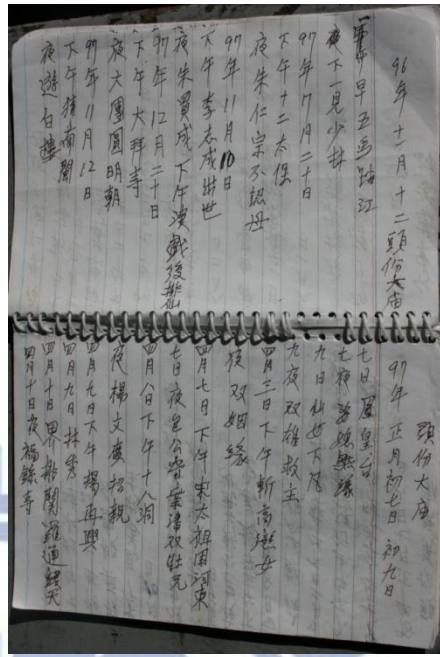 96年十一月十二頭份大庙
早五画跕江
夜下一見少林
97年7月二十日
下午十二太保
夜朱仁宗不認母
97年11月10日
下午李志成出世
夜朱買成下午演戲後
97年12月二十日
下午大拜寺
夜大團圓明朝
97年11月12日
下午猜南關
夜遊白樓
頭份大庙
97年正月初七日初九日
七日鳳皇台
七夜
九日仙女下凡
九夜双雄救主
四月三日下午斬高逃女
夜双姻緣
四月七日下午宋太祖困河東
七日夜包公審葉清双壯元
四月八日下午十八洞
夜楊文廣松親
四月九日下午楊再興
四月九日林秀
四月十日界牌關羅通
四月十日夜福錄寺